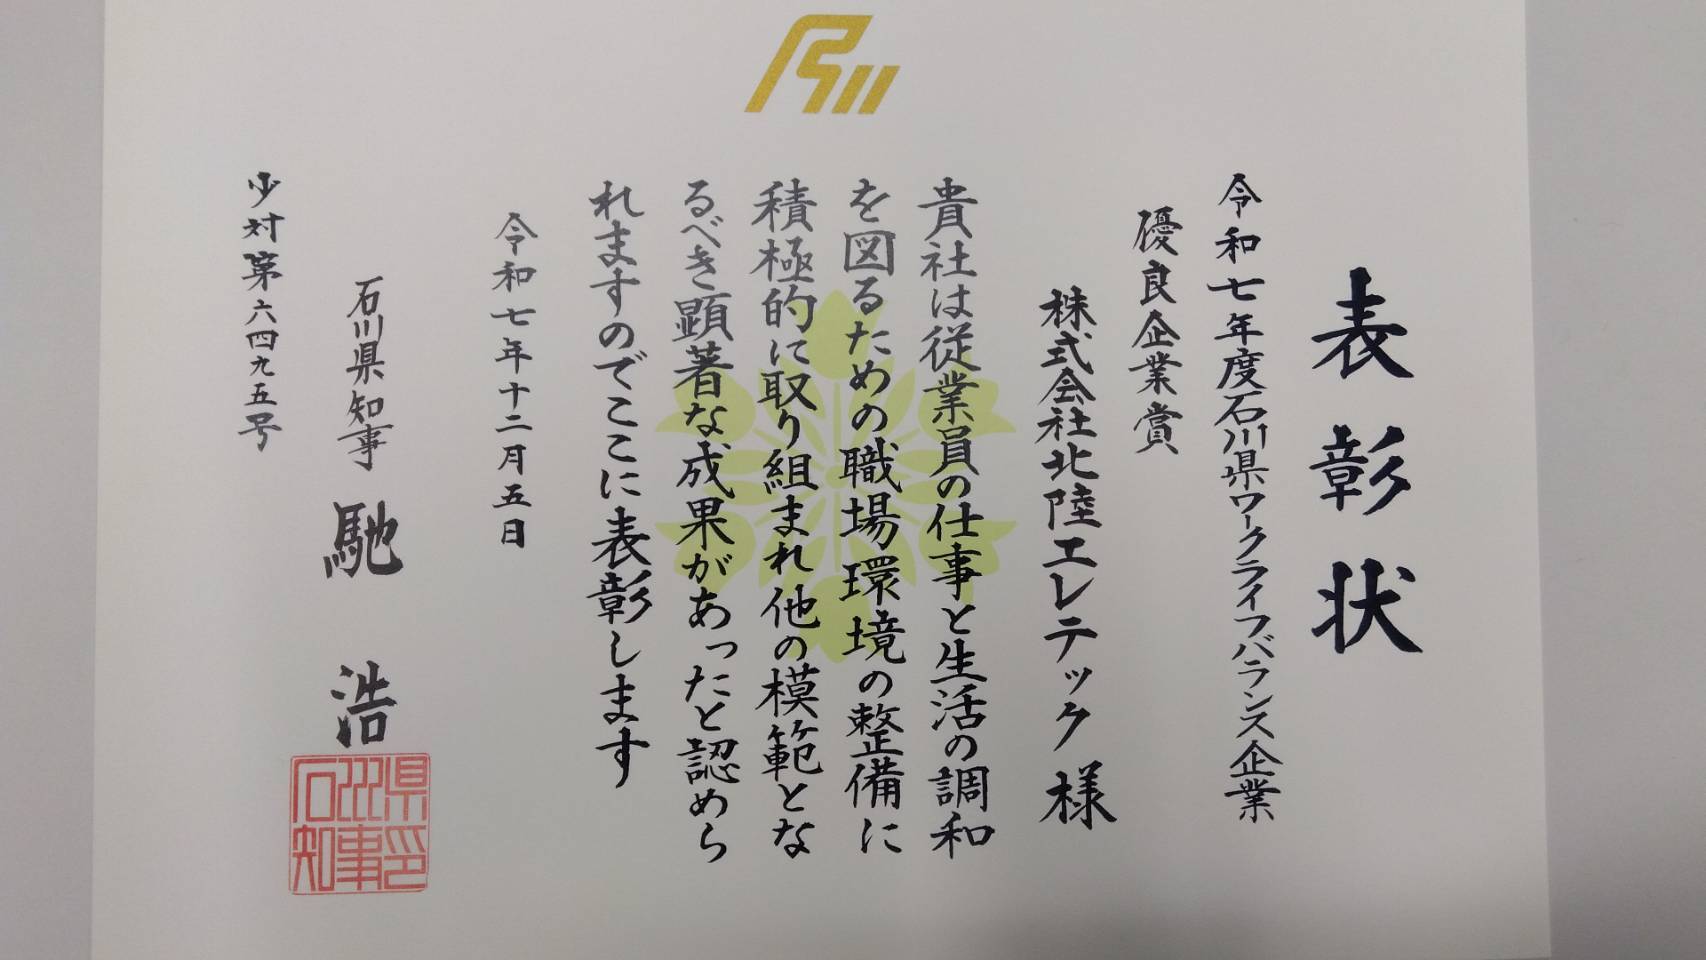 表彰状
令和七年度石川県ワークライフバランス企業
優良企業賞
株式会社北陸エレテック様
貴社は従業員の仕事と生活の調和
を図るための職場環境の整備に
積極的に取り組まれ他の模範とな
るべき顕著な成果があったと認めら
れますのでここに表彰します
令和七年十二月五日
石川県知事 馳 浩
石川県知事印
少対第六四九五号